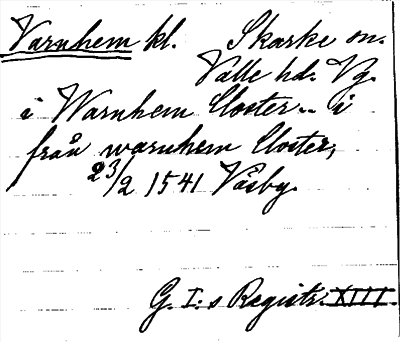 Varnhem kl. Skarke sn.
Valle hd. Vg.
i Warnhem Closter.. i
från warnhem Closter,
23/2 1541 Våsby.
G. I:s Registr. XIII.